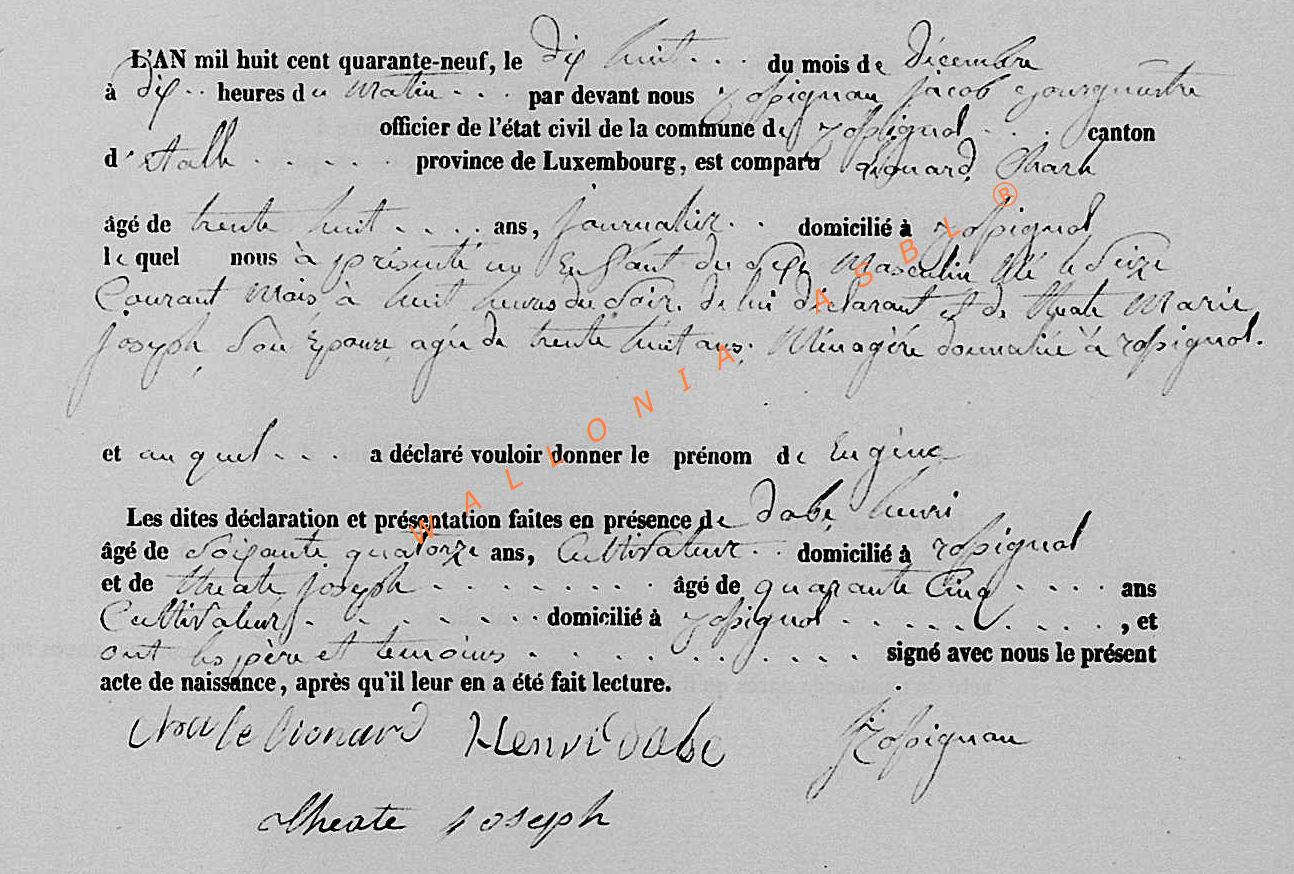 L'AN mil huit cent quarante-neuf, le Dix huit . . . du mois de Décembre
à Dix . . heures du matin . . . par devant nous rossignon jacob Bourgmestre
officier de l'état civil de la commune de rossignol . . . canton
d'Etalle . . . . . province de Luxembourg, est comparu
âgé de trente huit . . . . ans, journalier . . domicilié à rossignol
lequel nous à présenté un Enfant du Sexe Masculin Né le Seize
Courant Mois à huit heures du Soir. de lui déclarant et de theate Marie
joseph Son Epouse agée de trente huit ans. Ménagère domicilié à rossignol.
et auquel . . . a déclaré vouloir donner le prénom de Eugène
Les dites déclaration et présentation faites en présence de Dabe henri
âgé de Soixante quatorze ans, Cultivateur . . domicilié à rossignol
et de theate joseph . . . . . . . . âgé de quarante Cinq . . . . ans
Cultivateur . . . . . . . . domicilié à rossignol . . . . . . . . . , et
ont les père et temoins . . . . . . . . . signé avec nous le présent
acte de naissance, après qu'il leur en a été fait lecture.
Henri dabe rossignon
theate joseph
WALLONIA ASBL ®